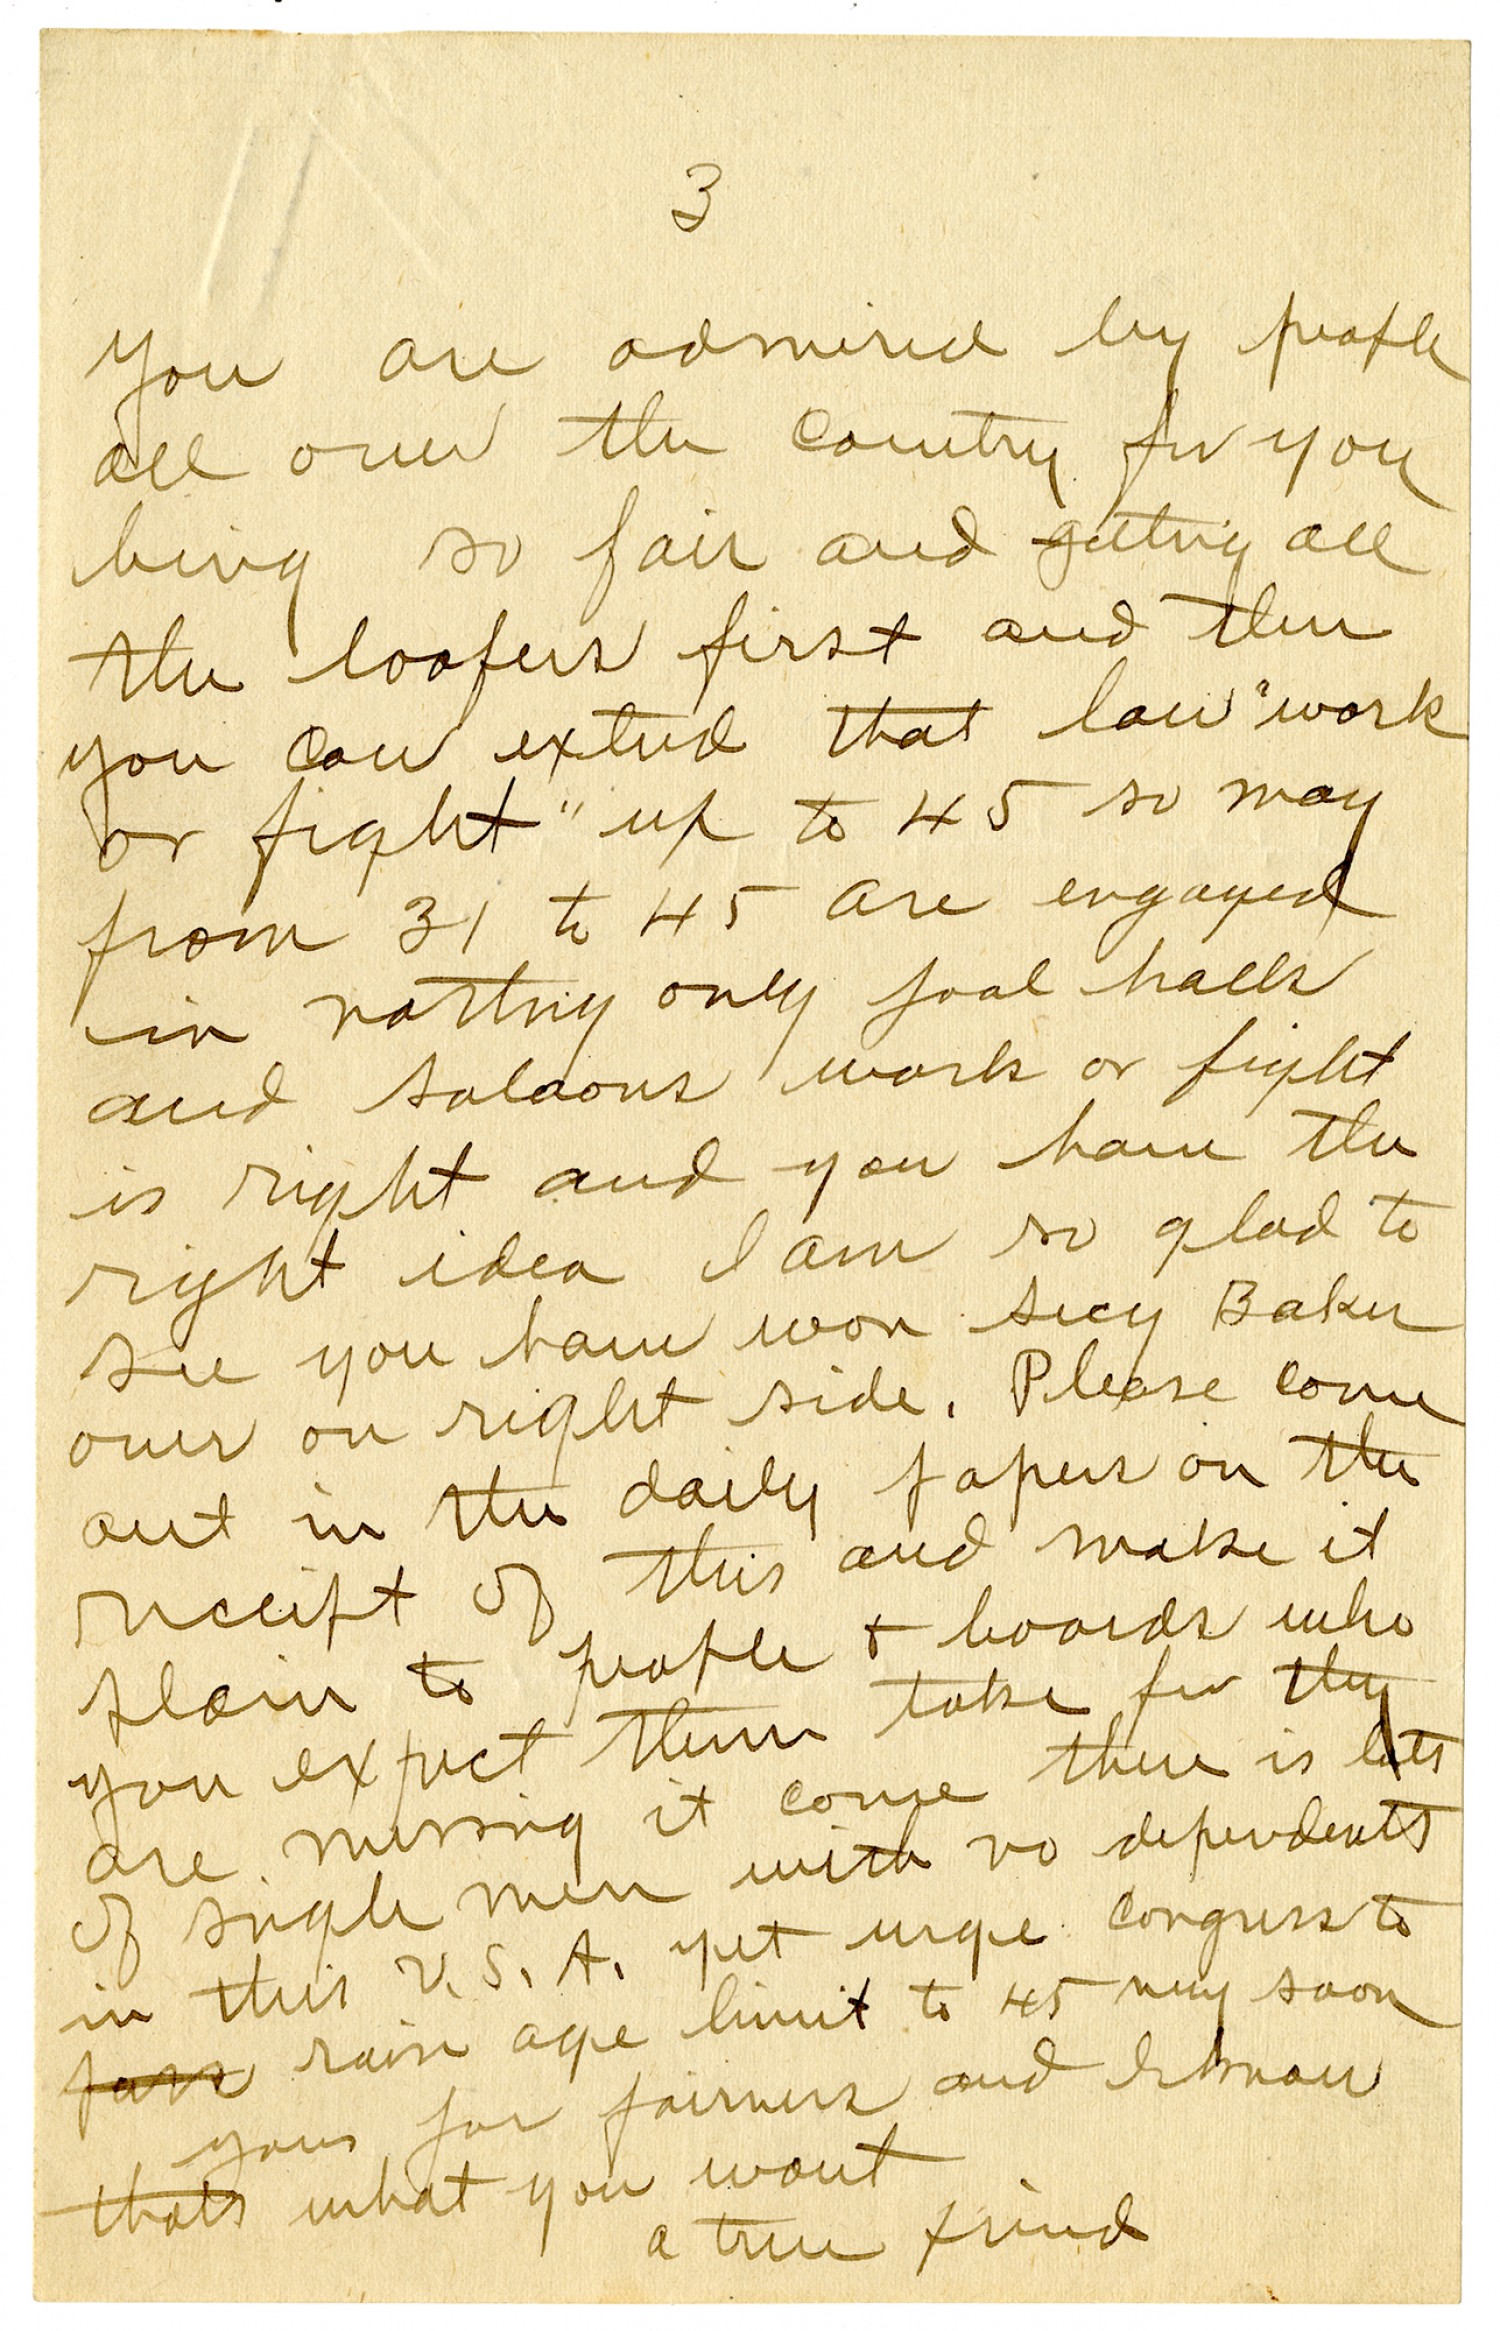 3
you are admired by people
all over the country for you
being so fair and getting all
the loafers first and then
you can extend that law "work
or fight" up to 45 so may
from 31 to 45 are engaged
in nothing only pool halls
and saloons work or fight
is right and you have the
right idea I am so glad to
see you have won secy Baker
over on right side. Please come
out in the daily papers on the
receipt of this and make it
plain to people + boards who
you expect them take for they
are missing it some there is lots
of single men with no dependents
in this U.S.A. yet urge congress to
pass raise age limit to 45 very soon
yours for fairness and I know
thats what you want
a true friend